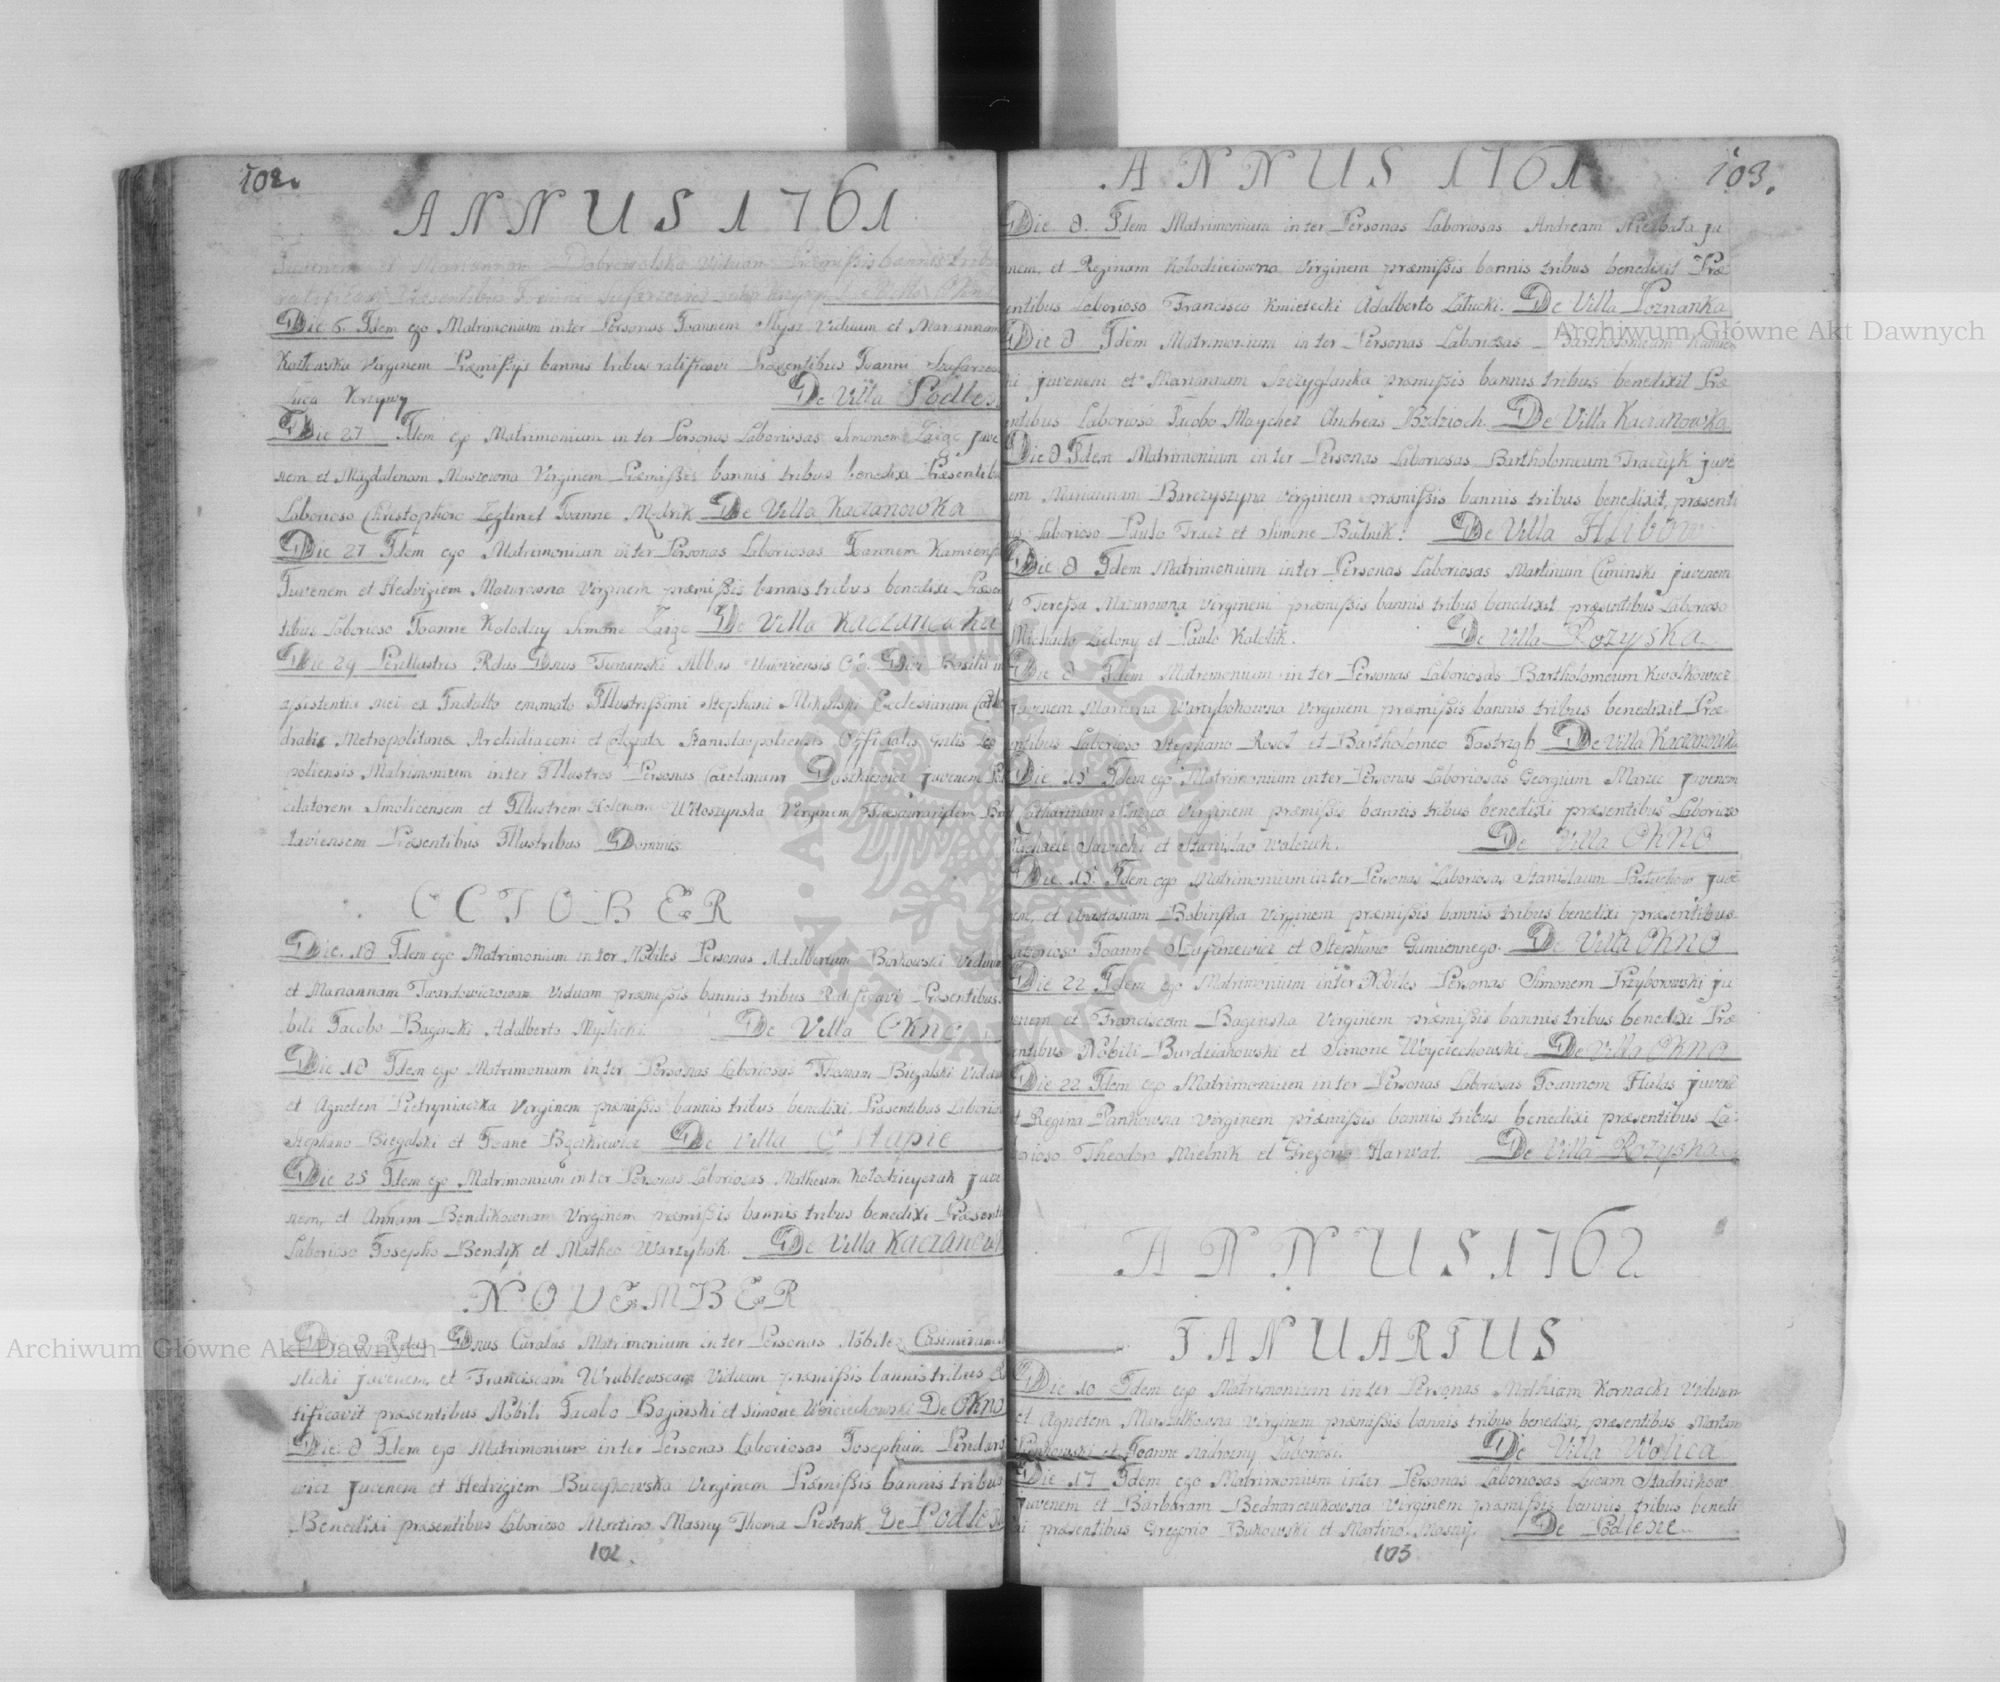 102.
ANNUS 1761
Juvenem et Mariannam Dabrowolska Viduam Præmissis bannis tribus
ratificavi Præsentibus
Die 6. Idem ego Matrimonium inter Personas Joannem Mysz Viduum et Mariannam
Virginem Præmissis bannis tribus ratificavi Præsentibus Joanni
Luca Korzywy De Villa Podles
Die 27 Idem ego Matrimonium inter Personas Laboriosas Simonem Zaigo juve
nem et Magdalenam Mussowna Virginem Præmissis bannis tribus benedixi Præsentibu
Laborioso Christophoro Zeglinet Joanne Mednik De Villa Kaczanowka
Die 27 Idem ego Matrimonium inter Personas Laboriosas Joannem Kamiens
Juvenem et Hedvigiem Mazurowna Virginem præmissis bannis tribus benedixi Præsen
tibus Laborioso Joanne Kolodzey Simone Zaigo De Villa Kaczanowka
Die 29 Perillustris Rdus Dnus Tumanski Abbas Uhorniensis Ord. Divi Basilii in
assistentia mei ex Indulto emanato Illustrissimi Stephani Mikulski Ecclesiarum Cathe
dralis Metropolitanæ Archidiaconi et Stanislaopoliensis Officialis Gnlis Leo
poliensis Matrimonium inter Illustres Personas Caietanum Daszkiewicz juvenem
cilatorem Smolicensem et Illustrem Helenam Wloszynska Virginem Thesaurariden
claviensem Præsentibus Illustribus Dominis
OCTOBER
Die. 18 Idem ego Matrimonium inter Nobiles Personas Adalbertum Borkowski Viduum
et Mariannam Twardowiczowam Viduam præmissis bannis tribus Ratificavi Præsentibus.
bili Jacobo Baginski Adalberto Myslicki De Villa OKNO
Die 18 Idem ego Matrimonium inter Personas Laboriosas Thomam Biegalski Viduum
et Agneten Pietryniaczka Virginem præmissis bannis tribus benedixi Præsentibus Laborios
Stephano Biegalski et Joane Bgerkiewicz De Villa Ostapie
Die 25 Idem ego Matrimonium inter Personas Laboriosas Matheum Kolodzieyczuk juve
nem, et Annam Bendikownam Virginem præmissis bannis tribus benedixi Præsenti
Laborioso Josepho Bendyk et Matheo Warzybok. De Villa Kaczanowk
NOVEMBER
Die 8 Rdus Dnus Curatus Matrimonium inter Personas Nobiles Casimirum
slicki juvenem, et Franciscam Wrublewscam Viduam præmissis bannis tribus Ra
tificavit præsentibus Nobili Jacobo Baginski et Simone Woiciechowski De OKNO
Die. 8 Idem ego Matrimonium inter Personas Laboriosas Josephum Pindars
wicz juvenem et Hedvigiem Buczkowska Virginem Præmissis bannis tribus
Benedixi præsentibus Laborioso Martino Masny Thoma Piestrak De Podles
102.
ANNUS 1761
103.
Die. 8. Idem Matrimonium inter Personas Laboriosas Andream Niezbata ju
nem, et Reginam Kolodzieiowna Virginem præmissis bannis tribus benedixit Præ
entibus Laborioso Francisco Kmietecki Adalberto Zalucki. De Villa Poznanka
Die 8 Idem Matrimonium inter Personas Laboriosas Bartholomeum Kamien
ki juvenem et Mariannam Szczyglanka præmissis bannis tribus benedixit Præ
entibus Laborioso Jacobo Maycher Andreas Bzdzioch. De Villa Kaczanowka
Die 8 Idem Matrimonium inter Personas Laboriosas Bartholomeum Traczyk juve
em Mariannam Barczyszyna Virginem præmissis bannis tribus benedixit, præsenti
us Laborioso Paulo Tracz et Simone Budnik. De Villa Hlibow
Die 8 Idem Matrimonium inter Personas Laboriosas Martinum Ciminski juvenem
t Teressa Mazurowna Virginem præmissis bannis tribus benedixit præsentibus Laborioso
Michaele Zielony et Paulo Katolik. De Villa Rozyska
Die 8 Idem Matrimonium inter Personas Laboriosas Bartholomeum Kwolkowicz
juvenem Marianna Warzybokowna Virginem præmissis bannis tribus benedixit Præ
entibus Laborioso Stephano Rosol et Bartholomeo Jastrzgb De Villa Kaczanowka
Die 15 Idem ego Matrimonium inter Personas Laboriosas Georgium Marec juvenem
t Catharinam Virginem præmissis bannis tribus benedixi præsentibus Laborioso
Michaeli Sawicki et Stanislao Walczuk. De Villa OKNO
Die. 15. Idem ego Matrimonium inter Personas Laboriosas Stanislaum Pastuchow juve
em, et Anastasiam Babinska Virginem præmissis bannis tribus benedixi præsentibus
Laborioso Joanne Szufraniewicz et Stephano Gumiennego. De Villa OKNO
Die 22 Idem ego Matrimonium inter Nobiles Personas Simonem Przyborowski ju
enem et Franciscam Baginska Virginem præmissis bannis tribus benedixi Præ
entibus Nobili Burdziakowski et Simone Woyciechowski. De Villa OKNO
Die 22 Idem ego Matrimonium inter Personas Laboriosas Joannem Hulas juvene
t Regina Pankowna Virginem præmissis bannis tribus benedixi præsentibus La-
borioso Theodoro Mielnik et Gregorio Harwat. De Villa Rozyska
ANNUS 1762
JANUARIUS
Die 10 Idem ego Matrimonium inter Personas Mathiam Kornacki Viduum
et Agnetem Marszalkowna Virginem præmissis bannis tribus benedixi, præsentibus Martino
Pienkowski et Joanne Nadrozny Laboriosi. De Villa Wolica
Die 17 Idem ego Matrimonium inter Personas Laboriosas Lucam Stadnikow
juvenem et Barbaram Bednarczukowna Virginem præmissis bannis tribus benedi
xi præsentibus Gregorio Bukowski et Martino Masny. De Podlesie
103
Archiwum Główne Akt Dawnych
Archiwum Główne Akt Dawnych
ARCHIWUM GŁÓWNE AKT DAWNYCH